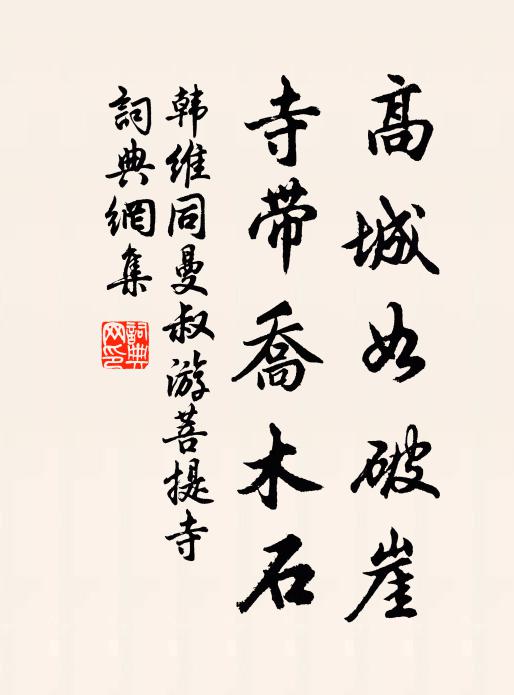 高城如破崖
寺帶喬木石
韩維同曼叔游菩提寺
詞典網集
詞典网印